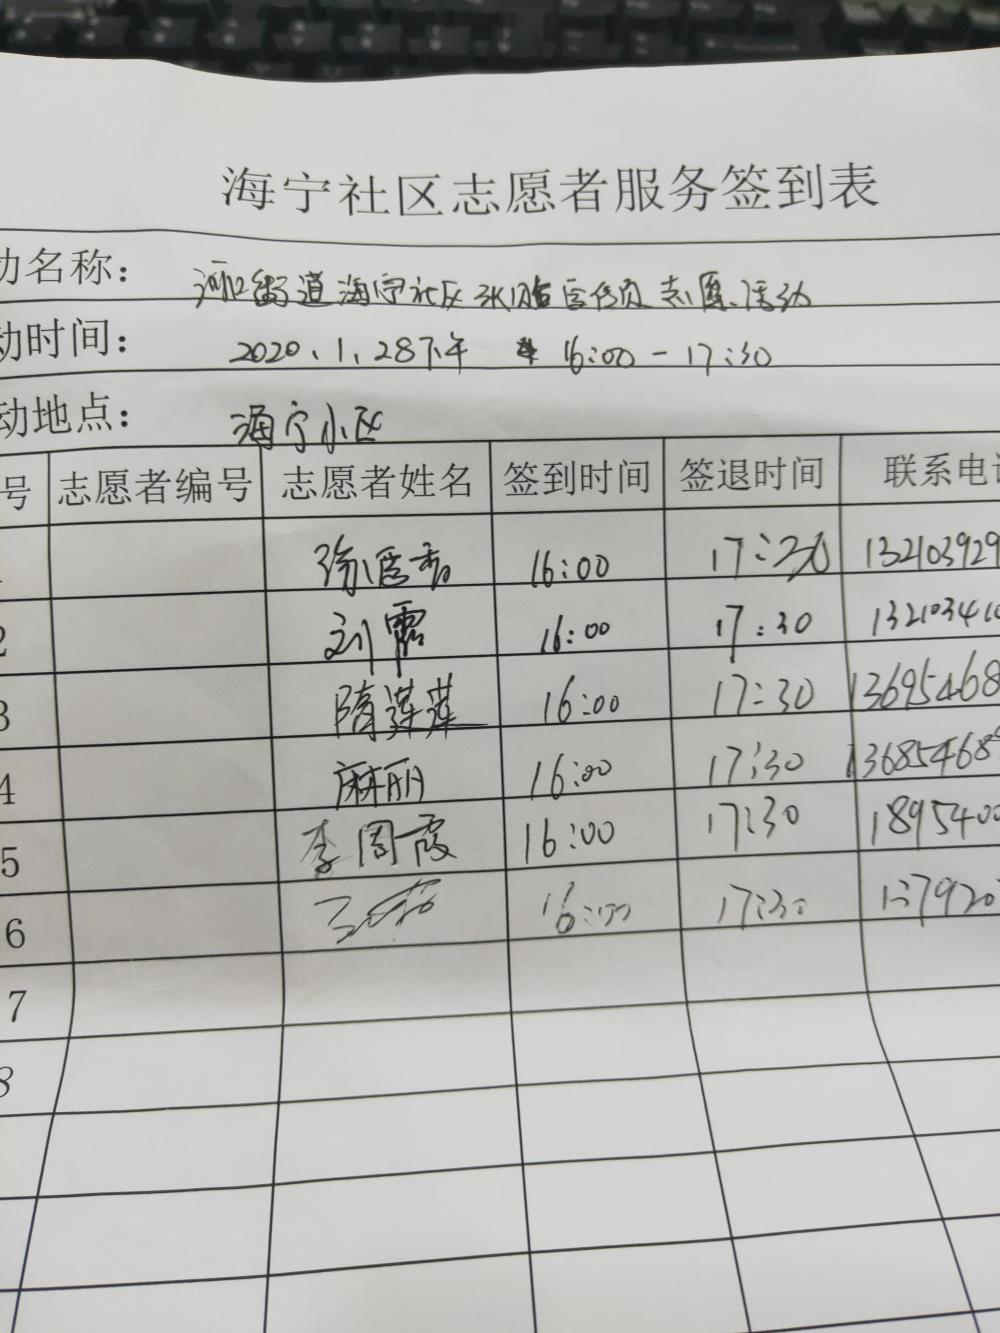 海宁社区志愿者服务签到表
动名称: 河口街道海宁社区张贴宣传页志愿活动
动时间: 2020.1.28下午 16:00-17:30
动地点: 海宁小区
号 志愿者编号 志愿者姓名 签到时间 签退时间 联系电话
16:00 17:30 132103929
2 刘霞 16:00 17:30 132103410
3 隋莲莲 16:00 17:30 13695468
4 麻丽 16:00 17:30 13685468
5 李周霞 16:00 17:30 1895400
6 16:00 17:30
7
8